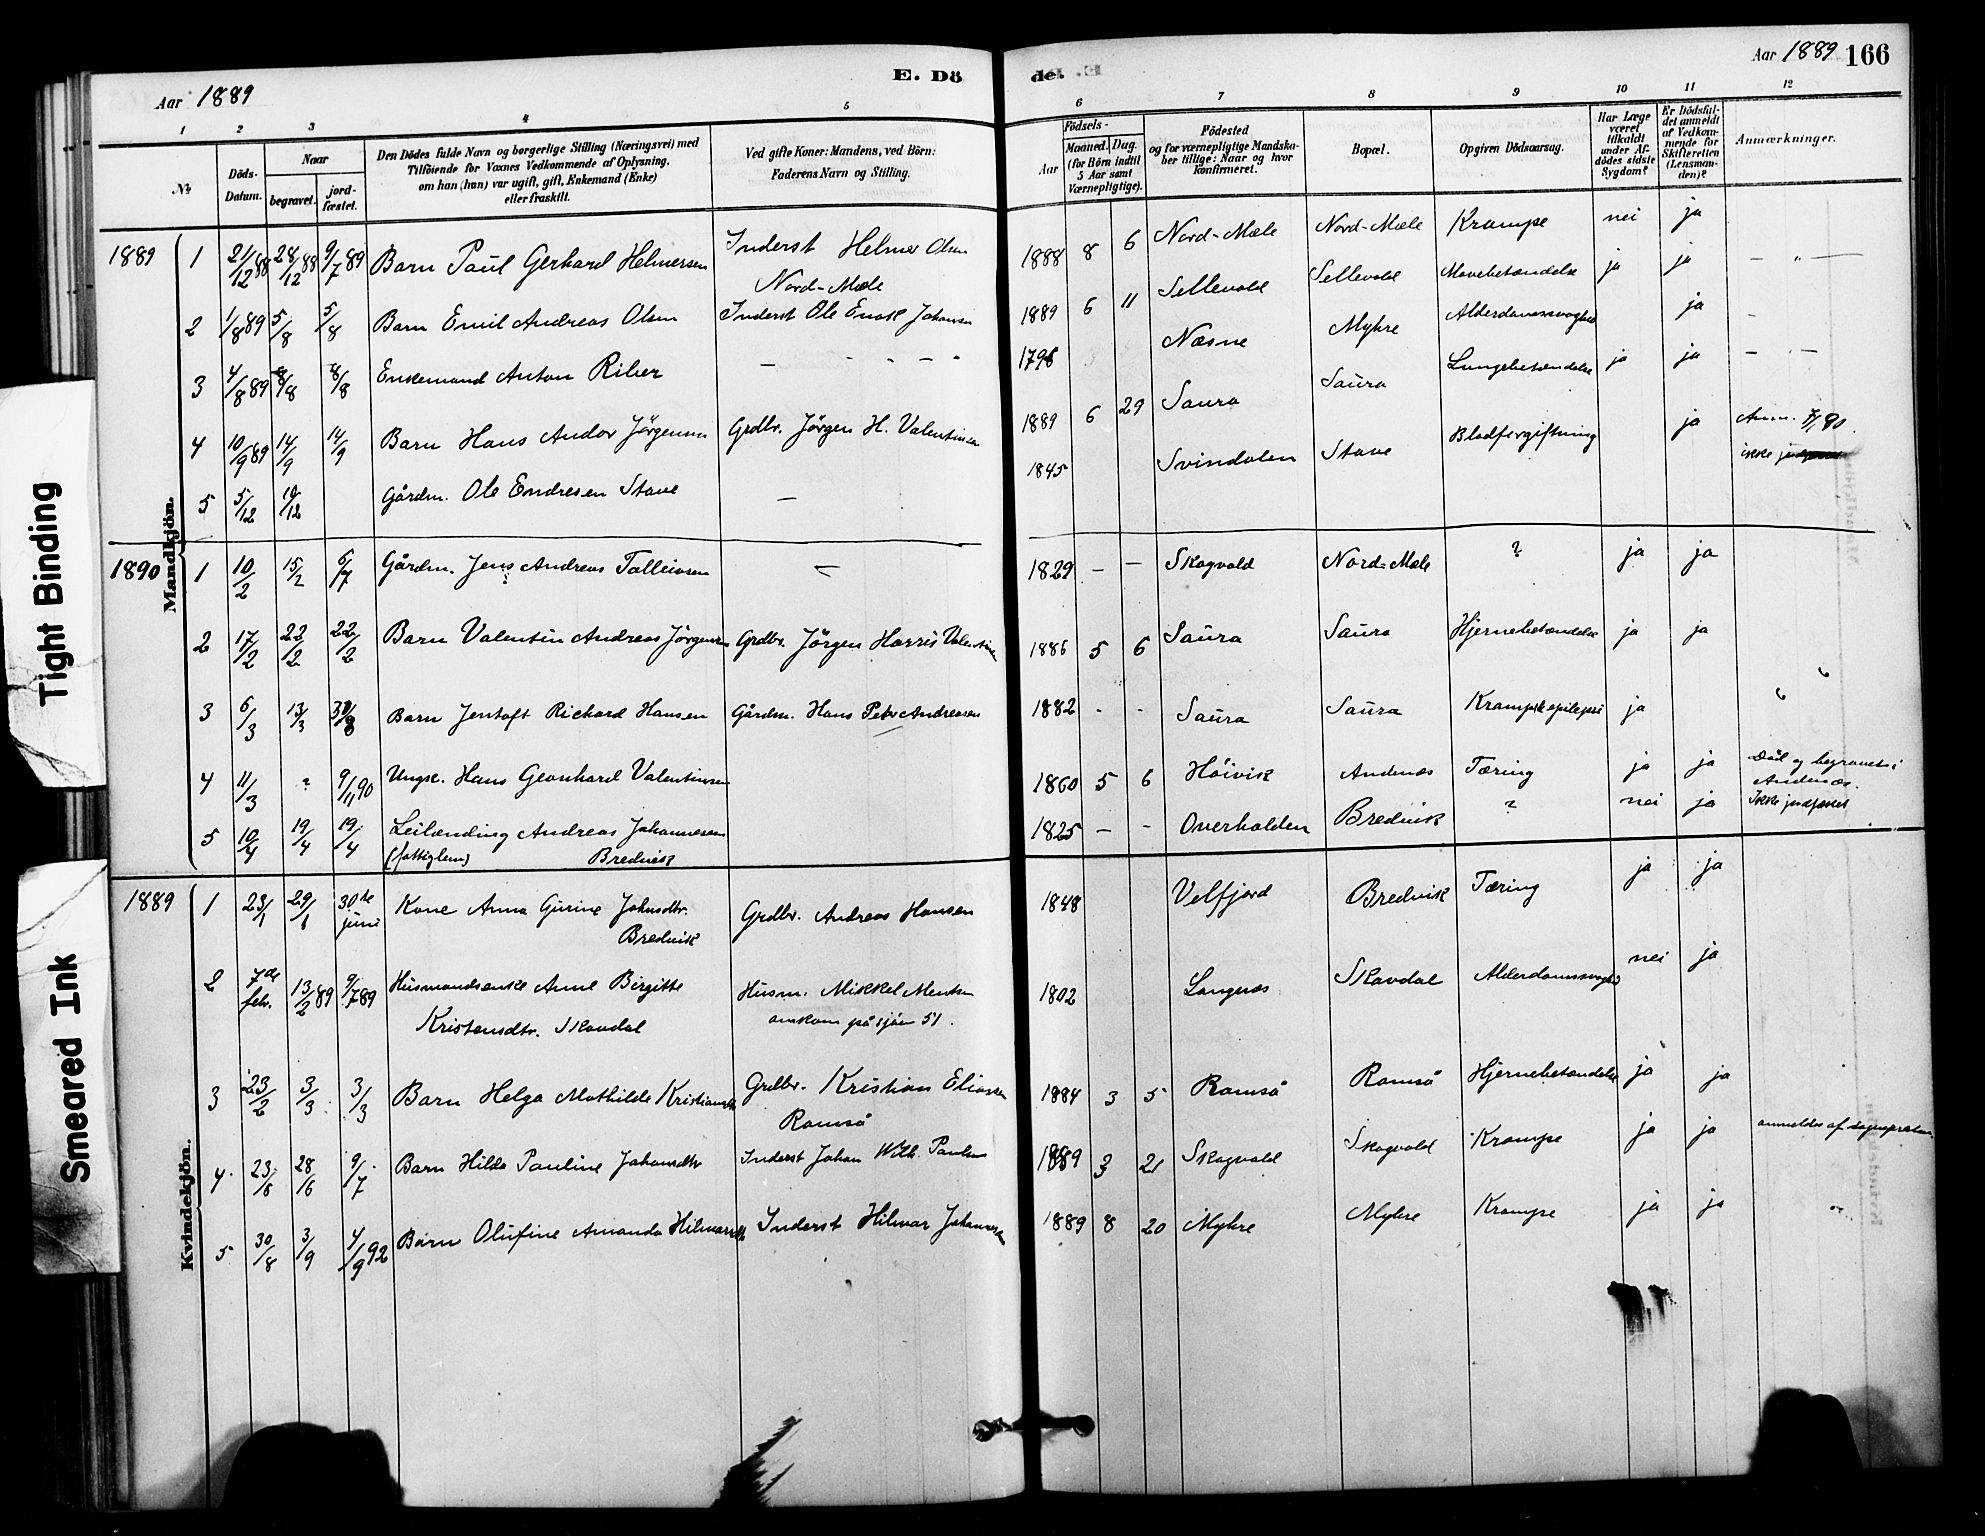 E. Dö
de.
Aar 1889
Aar 1889 166
1 2 3 4 5
6 7 8 9 10 11 12
No
Döds-
Datum.
Naar
begravet.
jord-
fæstet.
Den Dödes fulde Navn og borgerlige Stilling (Næringsvei) med
Tilföiende for Voxnes Vedkommende af Oplysning,
om han (hun) var ugift, gift, Enkemand (Enke)
eller fraskilt.
Ved gifte Koner: Mandens, ved Börn:
Faderens Navn og Stilling.
Födsels-
Aar
Maaned. Dag.
(for Börn indtil
5 Aar samt
Værnepligtige).
Födested
og for værnepligtige Mandska-
ber tillige: Naar og hvor
konfirmeret.
Bopæl.
Opgiven Dödsaarsag.
Har Læge
været
tilkaldt
under Af-
dödes sidste
Sygdom?
Er Dödsfal-
det anmeldt
af Vedkom-
mende for
Skifteretten
(Lensman-
den)?
Anmærkninger.
Mandkjön.
1889 1 21/12 88 28/12 88 9/7 89 Barn Paul Gerhard Helmersen Inderst Helmer Olsen
Nord-Mæle
1888 8 6 Nord-Mæle Nord-Mæle Krampe nei ja
2 1/8 89 5/8 5/8 Barn Emil Andreas Olsen Inderst Ole Enok Johansen
1889 6 11 Sellevold Sellevold Mavebetændelse ja ja — " —
3 4/8 89 8/8 8/8 Enkemand Anton Riber —
Næsne Myhre Alderdomssvaghed ja
4 10/9 89 14/9 14/9 Barn Hans Andor Jörgensen Grdbr. Jörgen H. Valentinsen
1889 6 29 Saura Saura Lungebetændelse ja ja
5 5/12 Gårdm. Ole Endresen Stave —
1845 Svindalen Stave Blodforgiftning ja
ikke
1890 1 10/2 15/2 6/7 Gårdm. Jens Andreas Tolleivsen —
1829 — — Skogvold Nord-Mæle ? ja ja
2 17/2 22/2 22/2 Barn Valentin Andreas Jörgensen Grdbr. Jörgen Harris Valentinsen
1886 5 6 Saura Saura Hjernebetændelse ja ja
3 6/3 13/3 Barn Jentoft Richard Hansen Gårdm. Hans Peter Andreasen
1882 - - Saura Saura ja
4 11/3 ? 9/11 90 Ungk. Hans Geonhard Valentinsen
1860 5 6 Höivik Andenæs Tæring ja ja Död og begravet i
Andenæs.
5 10/4 19/4 19/4 Leilænding Andreas Johannesen
(fattiglem) Bredvik
1825 — - Overhalden Bredvik ? nei ja Ikke jordfæstet
Kvindekjön.
1889 1 23/1 29/1 30te
juni Kone Anna Gurine Johnsdtr.
Bredvik
Grdbr. Andreas Hansen
1848 Velfjord Bredvik Tæring ja ja
2 7de
febr. 13/2 89 9/7 89 Husmandsenke Anne Birgitte
Kristensdtr. Skavdal
Husm. Mikkel Mentsen
omkom på sjöen 51.
1802 Langnæs Skavdal Alderdomssvaghed nei ja
3 23/2 3/3 3/3 Barn Helga Mathilde Kristiansdtr Grdbr. Kristian Eliassen
Ramså
1884 3 5 Ramså Ramså Hjernebetændelse ja ja
4 23/6 28/6 9/7 Barn Hilda Pauline Johansdtr Inderst Johan Wilh. Paulsen
1889 3 21 Skogvold Skogvold Krampe ja ja anmeldes af sognepresten
5 30/8 3/9 4/9 92 Barn Olufine Amanda Hilmarsdtr Inderst Hilmar Johannesen
1889 8 20 Myhre Myhre Krampe ja ja
Tight Binding
Smeared Ink